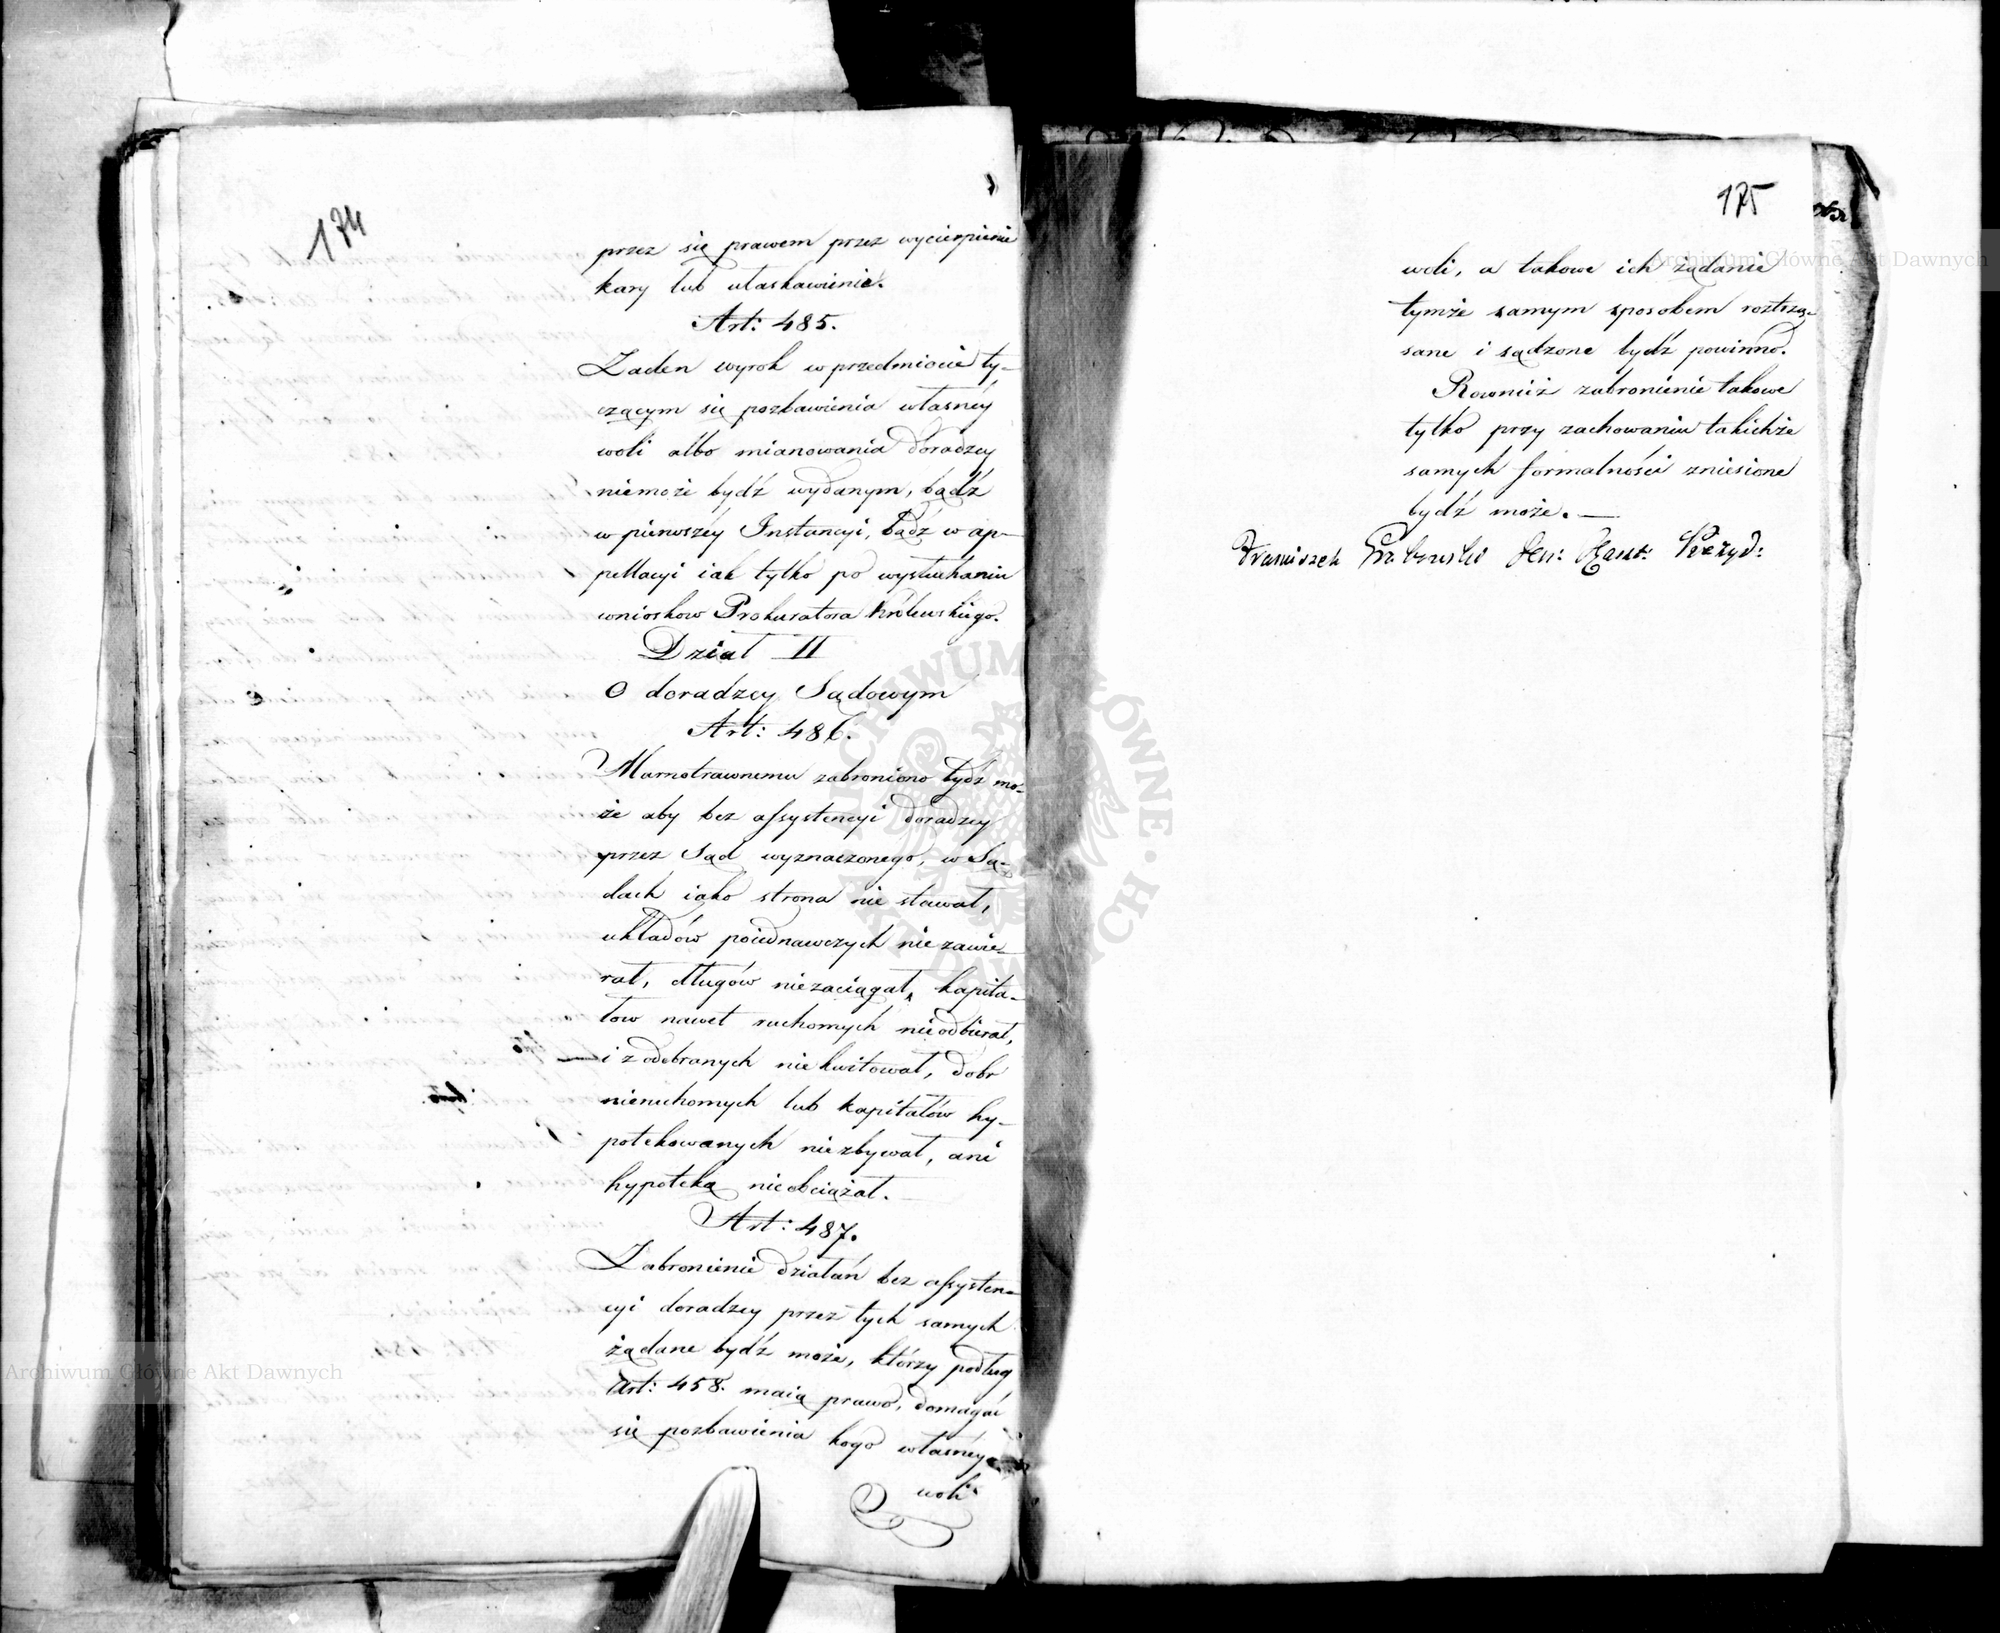 174
przez się prawem przez wycierpienie
kary lub ułaskawienie.
Art: 485.
Żaden wyrok w przedmiocie ty-
czącym się pozbawienia własnéy
woli albo mianowania doradzcy
niemoże bydź wydanym, bądź
w pierwszéy Instancyi, bądź w ap-
pellacyi iak tylko po wysłuchaniu
wnioskow Prokuratora Królewskiego.
Dział II
O doradzcy Sądowym
Art: 486.
Marnotrawnemu zabroniono bydź mo-
że aby bez assystencyi doradzcy
przez Sąd wyznaczonego, w Są-
dach iako strona nie stawał,
układów poiednawczych nie zawie-
rał, długów niezaciągał, kapita-
łow nawet ruchomych nieodbierał,
i z odebranych niekwitował, dobr
nieruchomych lub kapitałów hy-
potekowanych niezbywał, ani
hypoteką nieobciążał.
Art: 487.
Zabronienie działań bez assysten-
cyi doradzcy przez tych samych
żądane bydź może, którzy podług
Art: 458. maią prawo, domagać
się pozbawienia kogo własnéy
woli
175
woli, a takowe ich żądanie
tymże samym sposobem roztrzą-
sane i sądzone bydź powinno.
Rownież zabronienie takowe
tylko przy zachowaniu takichże
samych formalności zniesione
bydź może.
Franciszek Grabowski Sen: Kaszt: Prezyd:
Archiwum Główne Akt Dawnych
Archiwum Główne Akt Dawnych
ARCHIWUM GŁÓWNE AKT DAWNYCH